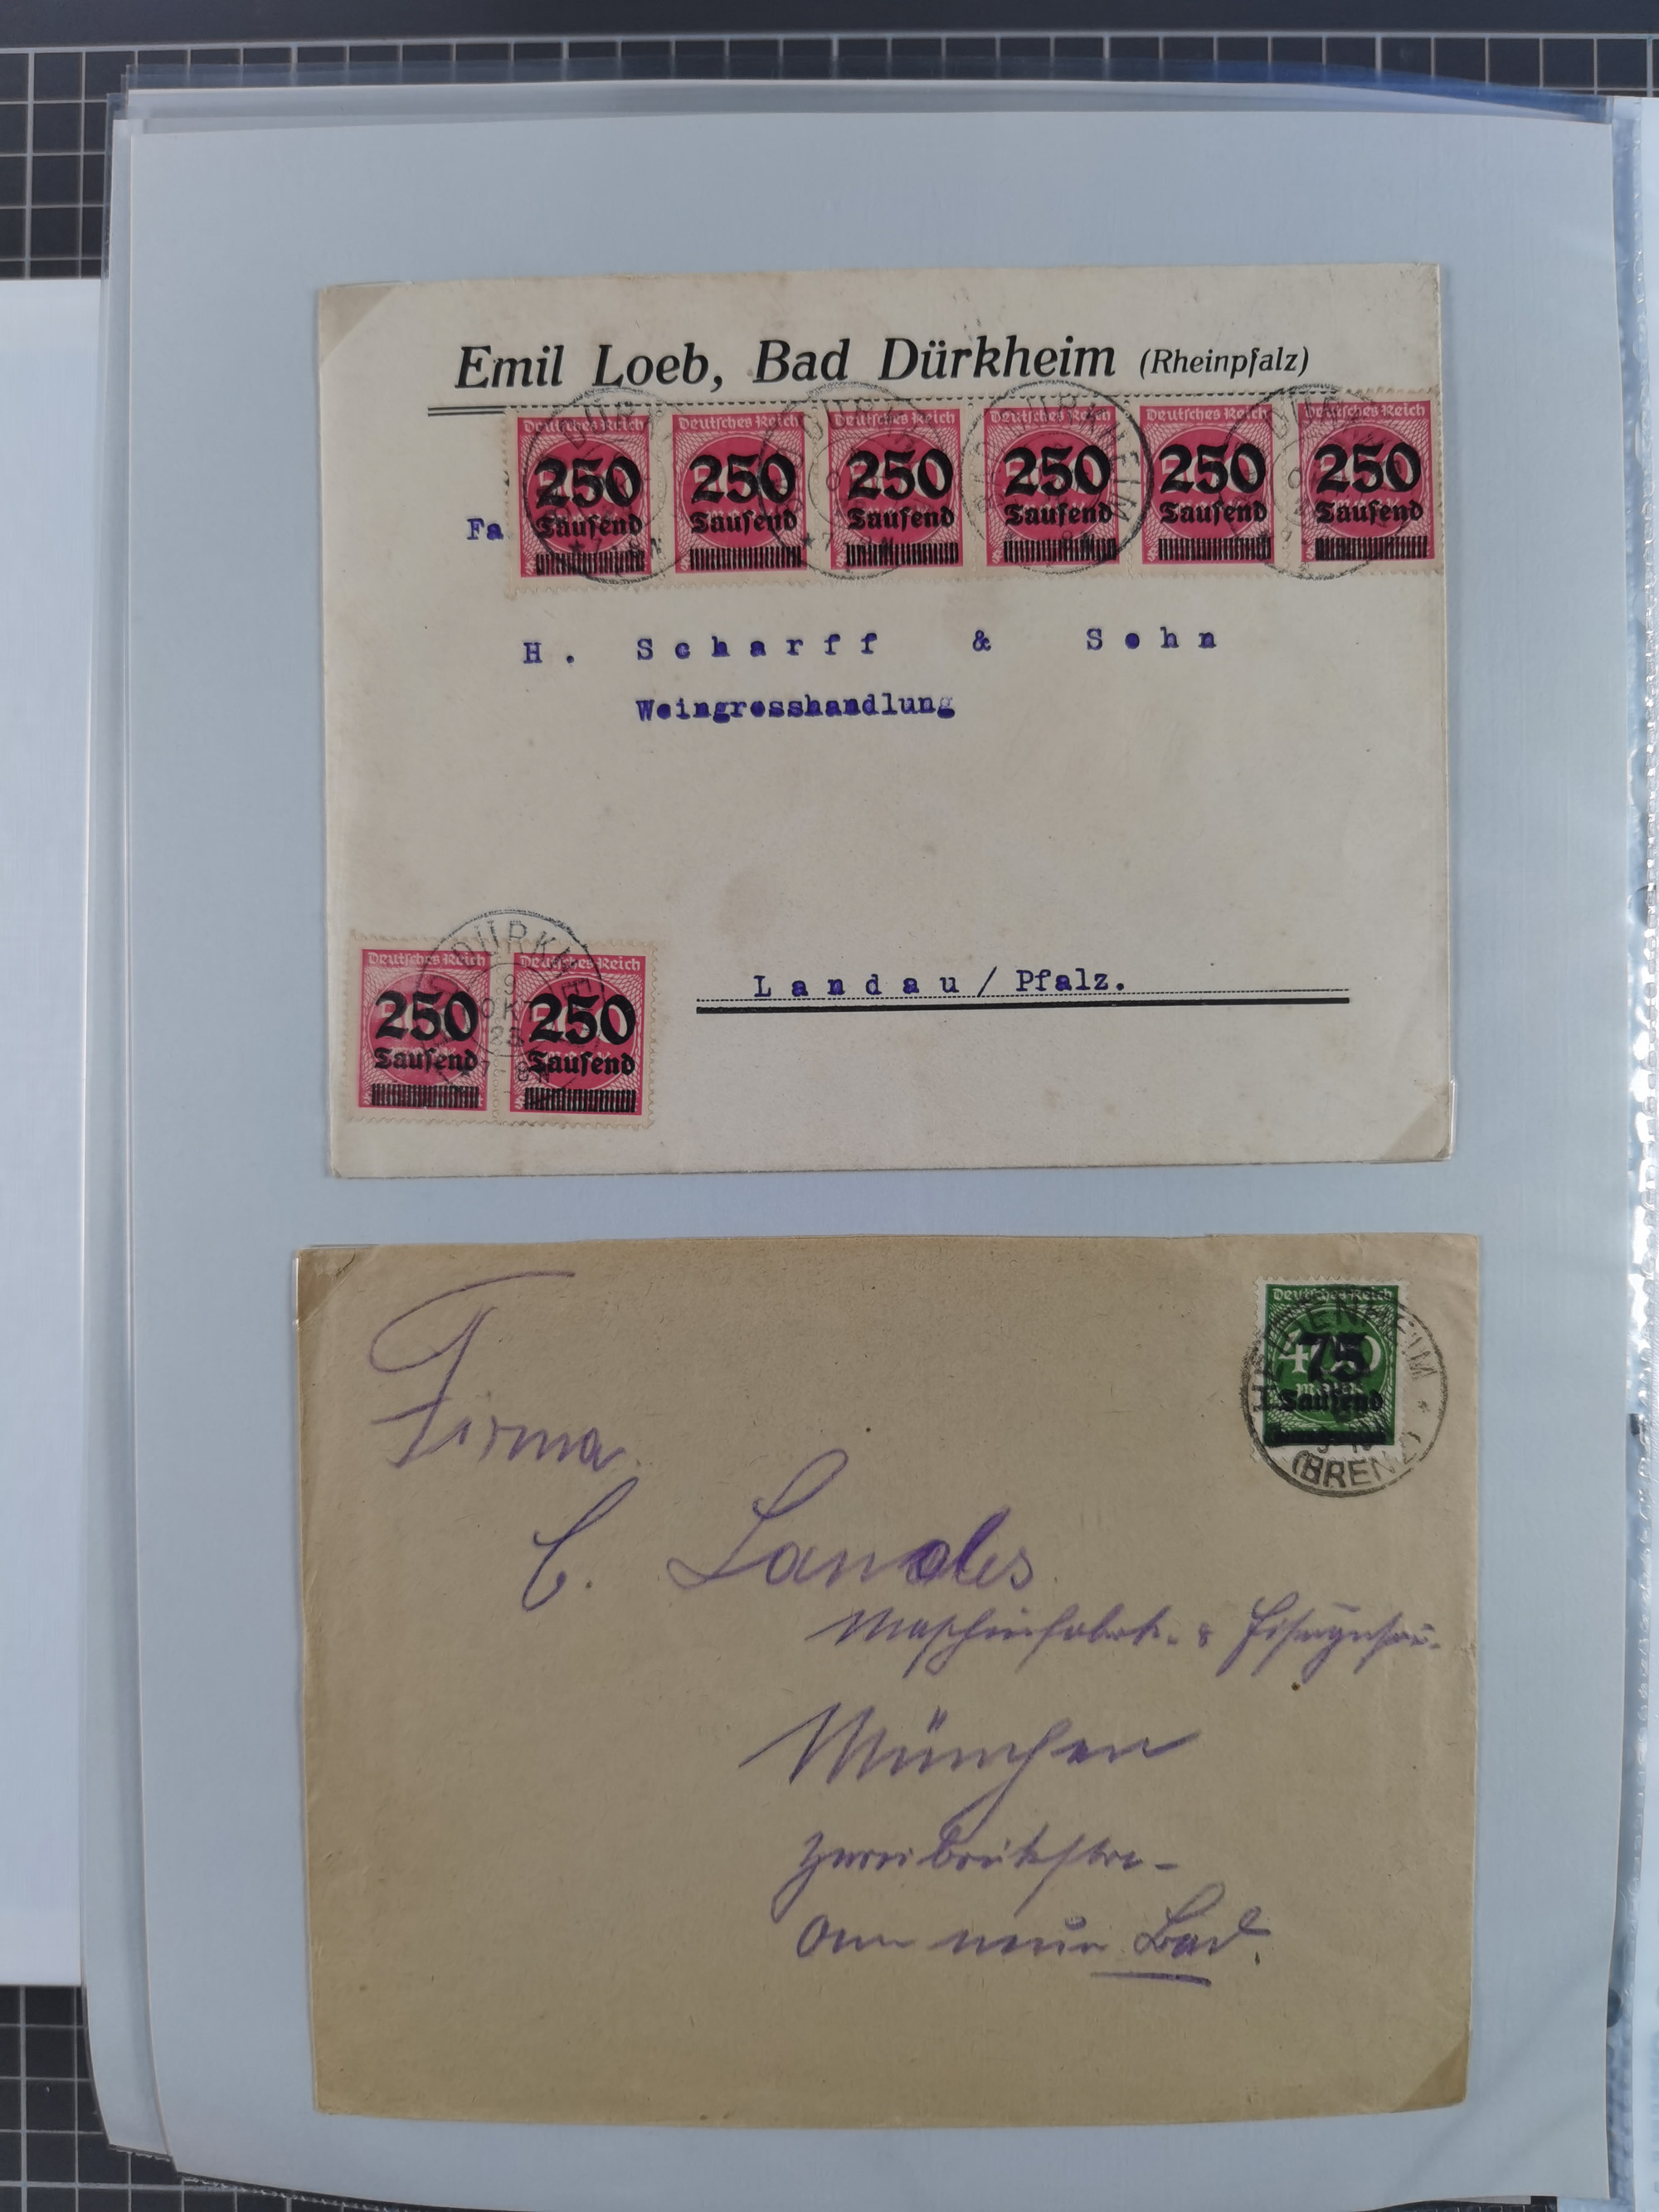 Emil Loeb, Bad Dürkheim (Rheinpfalz)
Deutsches Reich Deutsches Reich Deutsches Reich Deutsches Reich Deutsches Reich Deutsches Reich
250 250 250 250 250 250
Tausend Tausend Tausend Tausend Tausend Tausend
BAD DÜRKHEIM
Fa
H. Scharff & Sehn
Weingresshandlung
Deutsches Reich Deutsches Reich
250 250
Tausend Tausend
DÜRKHEIM
9
OKT
23
Landau/Pfalz.
Deutsches Reich
400
75
Mark
Tausend
(BRENZ)
Firma
C. Landes
Maschinfabrik &
München
Zweibrückstr.
Bad.